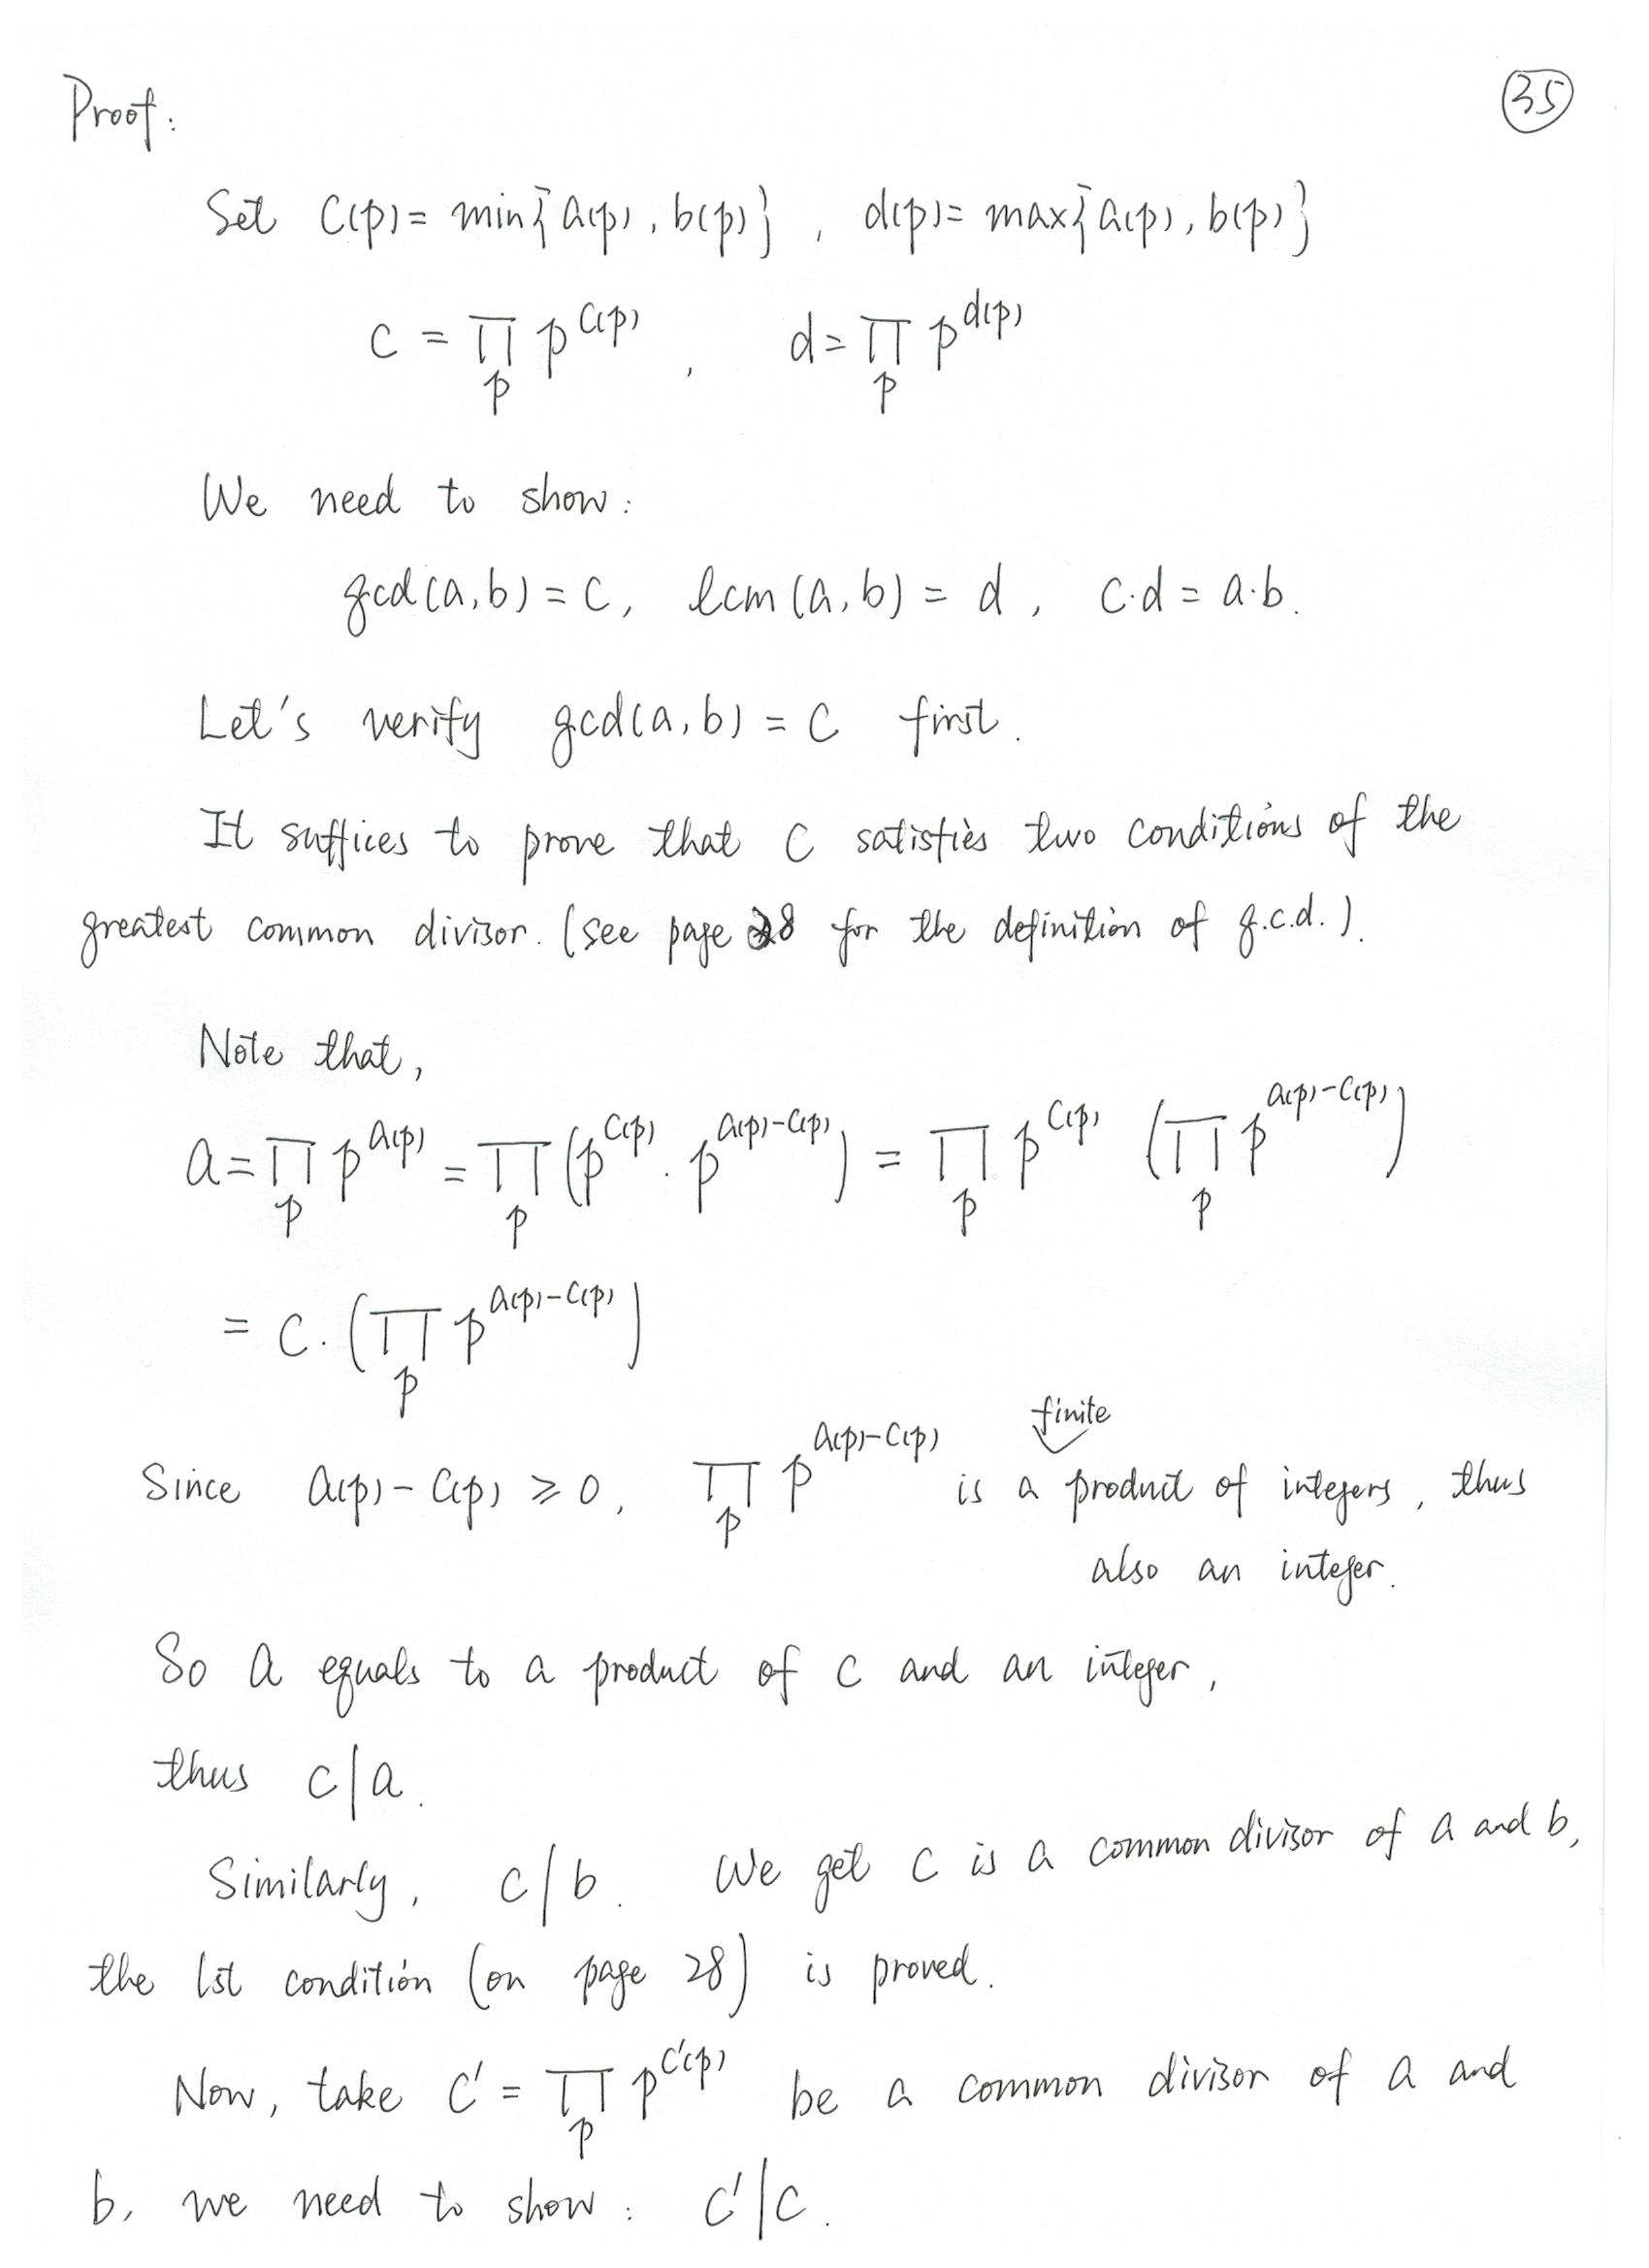 Proof: 35
Set c(p) = min{a(p), b(p)}, d(p) = max{a(p), b(p)}
c = ∏_p p^{c(p)}, d = ∏_p p^{d(p)}
We need to show:
gcd(a, b) = c, lcm(a, b) = d, c·d = a·b.
Let's verify gcd(a, b) = c first.
It suffices to prove that c satisfies two conditions of the
greatest common divisor. (see page 28 for the definition of g.c.d.).
Note that,
a = ∏_p p^{a(p)} = ∏_p (p^{c(p)} · p^{a(p)-c(p)}) = ∏_p p^{c(p)} (∏_p p^{a(p)-c(p)})
= c · (∏_p p^{a(p)-c(p)})
Since a(p) - c(p) ≥ 0, ∏_p p^{a(p)-c(p)} is a finite product of integers, thus
also an integer.
So a equals to a product of c and an integer,
thus c | a.
Similarly, c | b. We get c is a common divisor of a and b,
the 1st condition (on page 28) is proved.
Now, take c' = ∏_p p^{c'(p)} be a common divisor of a and
b, we need to show: c' | c.